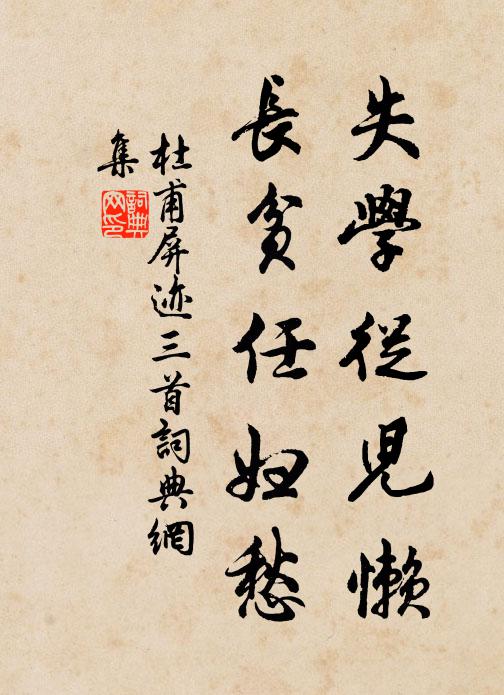 失學從兒懶
長貧任婦愁
杜甫屏迹三首詞典網
集
詞典
网印